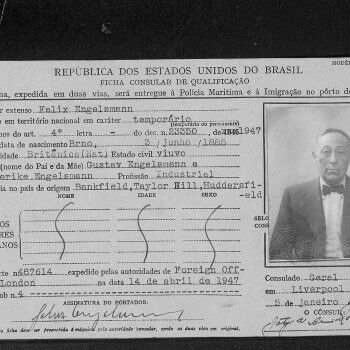 MODÊ
REPÚBLICA DOS ESTADOS UNIDOS DO BRASIL
FICHA CONSULAR DE QUALIFICAÇÃO
ha, expedida em duas vias, será entregue à Polícia Marítima e à Imigração no pôrto de
extenso Felix Engelsmann
o em território nacional em caráter temporário
(temporário ou permanente)
nos do art. 4º letra - do dec. n. 23350, de 1947
data de nascimento Brno, 3/junho/1885
idade Britânica(Nat) Estado civil viuvo
(nome do Pai e da Mãe) Gustav Engelsmann e
erike Engelsmann Profissão Industrial
ia no país de origem Bankfield, Taylor Hill, Huddersfi-
eld
NOME IDADE SEXO
OS
RES
ANOS
SÊLO
CONS
rte n. 487614 expedido pelas autoridades de Foreign Off-
London na data 14 de abril de 1947
ob n. 4
ASSINATURA DO PORTADOR:
Felix Engelsmann
Consulado Geral
em Liverpool
5 de janeiro d
O CÔNSUL
ficha deve ser preenchida à máquina pela autoridade consular, sendo as duas vias em original.